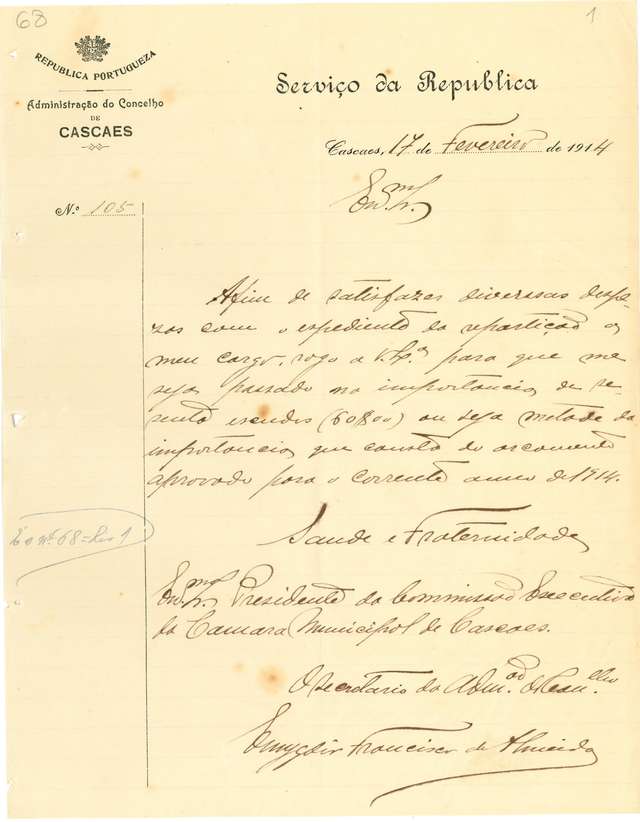 68
1
REPUBLICA PORTUGUEZA
Administração do Concelho
DE
CASCAES
Serviço da Republica
Cascaes, 17 de Fevereiro de 1914
N.º 105
Exmº. Sr.
Afim de satisfazer diversas despe-
zas com o expediente da repartição a
meu cargo, rogo a V. Exª para que me
seja passado na importancia de se-
senta escudos (60$00) ou seja metade da
importancia que consta do orcamento
aprovado para o corrente anno de 1914.
Saude e Fraternidade
É o nº 68
Exmº. Sr. Presidente da Commissão Executiva
da Camara Municipal de Cascaes.
O secretario da Adm.ão do Con.lho
Emygdio Francisco de Almeida